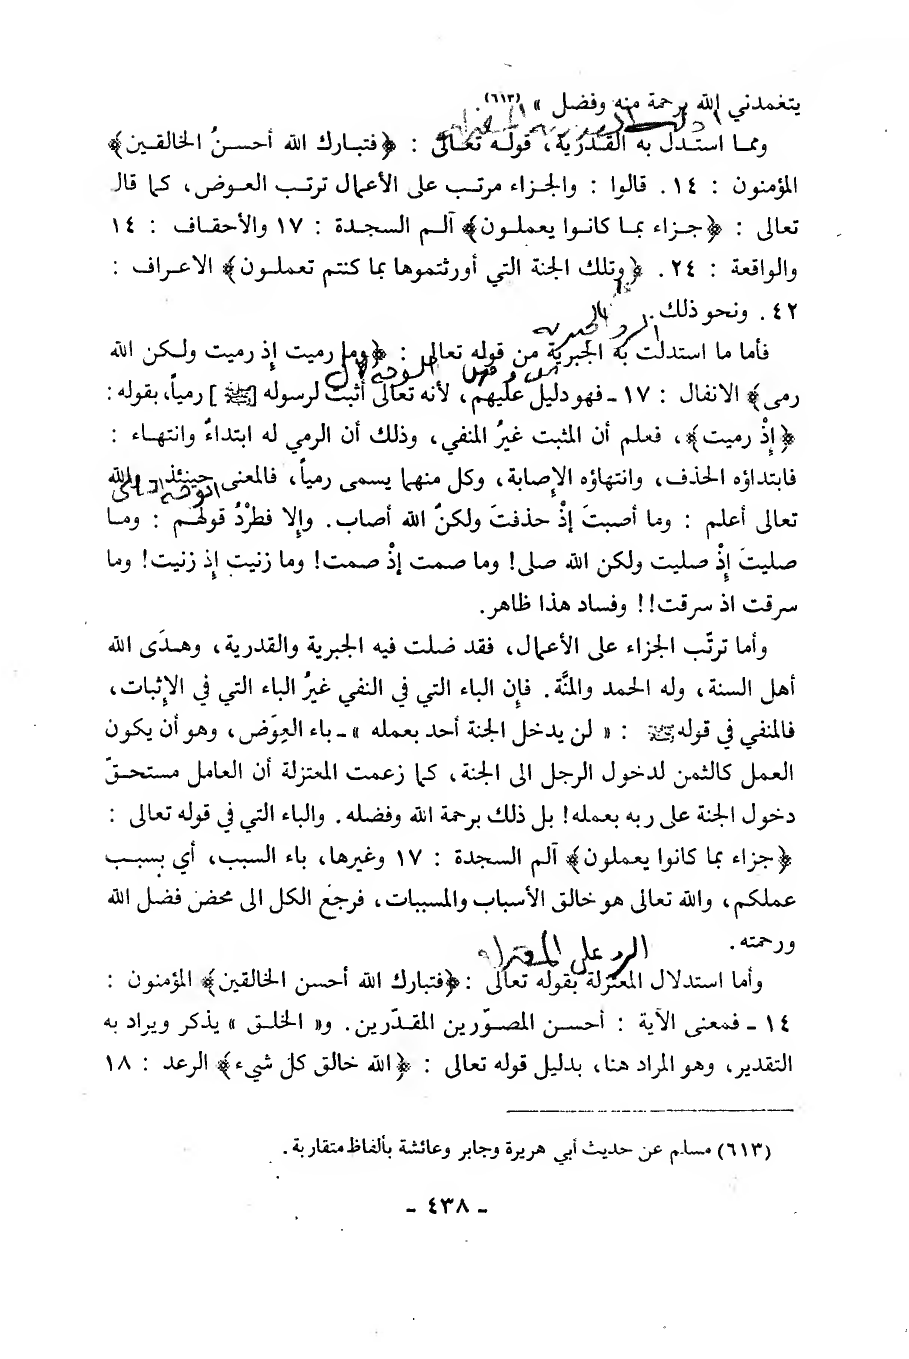 يتغمدني الله برحمة منه وفضل » (٦١٣).
ومما استدل به القدرية، قوله تعالى : ﴿فتبارك الله أحسنُ الخالقين﴾
المؤمنون : ١٤. قالوا : والجزاء مرتب على الأعمال ترتب العوض، كما قال
تعالى : ﴿جزاء بما كانوا يعملون﴾ آلم السجدة : ١٧ والأحقاف : ١٤
والواقعة : ٢٤. ﴿وتلك الجنة التي أورثتموها بما كنتم تعملون﴾ الاعراف :
٤٢. ونحو ذلك.
الرد
فأما ما استدلت به الجبرية من قوله تعالى : ﴿وما رميت إذ رميت ولكن الله
رمى﴾ الانفال : ١٧ ـ فهو دليل عليهم، لأنه تعالى أثبت لرسوله [ﷺ] رمياً، بقوله :
﴿إذْ رميت﴾، فعلم أن المثبت غيرُ المنفي، وذلك أن الرمي له ابتداءٌ وانتهاء :
فابتداؤه الحذف، وانتهاؤه الإصابة، وكل منهما يسمى رمياً، فالمعنى حينئذ والله
تعالى أعلم : وما أصبتَ إذْ حذفتَ ولكنَّ الله أصاب. وإلا فطرْدُ قولهم : وما
صليتَ إذْ صليت ولكن الله صلى! وما صمت إذْ صمت! وما زنيت إذ زنيت! وما
سرقت اذ سرقت!! وفساد هذا ظاهر.
وأما ترتّب الجزاء على الأعمال، فقد ضلت فيه الجبرية والقدرية، وهدَى الله
أهل السنة، وله الحمد والمنَّة. فإن الباء التي في النفي غيرُ الباء التي في الإثبات،
فالمنفي في قوله ﷺ : « لن يدخل الجنة أحد بعمله » ـ باء العِوَض، وهو أن يكون
العمل كالثمن لدخول الرجل الى الجنة، كما زعمت المعتزلة أن العامل مستحقّ
دخول الجنة على ربه بعمله! بل ذلك برحمة الله وفضله. والباء التي في قوله تعالى :
﴿جزاء بما كانوا يعملون﴾ آلم السجدة : ١٧ وغيرها، باء السبب، أي بسبب
عملكم، والله تعالى هو خالق الأسباب والمسببات، فرجع الكل الى محض فضل الله
ورحمته.
الرد على المعتزلة
وأما استدلال المعتزلة بقوله تعالى : ﴿فتبارك الله أحسن الخالقين﴾ المؤمنون :
١٤ ـ فمعنى الآية : أحسن المصوّرين المقدّرين. و« الخلق » يذكر ويراد به
التقدير، وهو المراد هنا، بدليل قوله تعالى : ﴿الله خالق كل شيء﴾ الرعد : ١٨
(٦١٣) مسلم عن حديث أبي هريرة وجابر وعائشة بألفاظ متقاربة.
ـ ٤٣٨ ـ